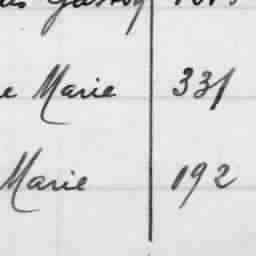 e Marie 331
Marie 192